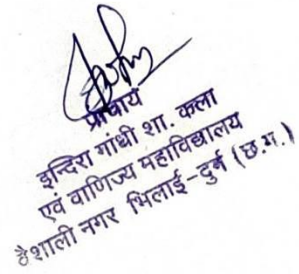 प्राचार्य
इन्दिरा गांधी शा. कला
एवं वाणिज्य महाविद्यालय
वैशाली नगर भिलाई-दुर्ग (छ.ग.)